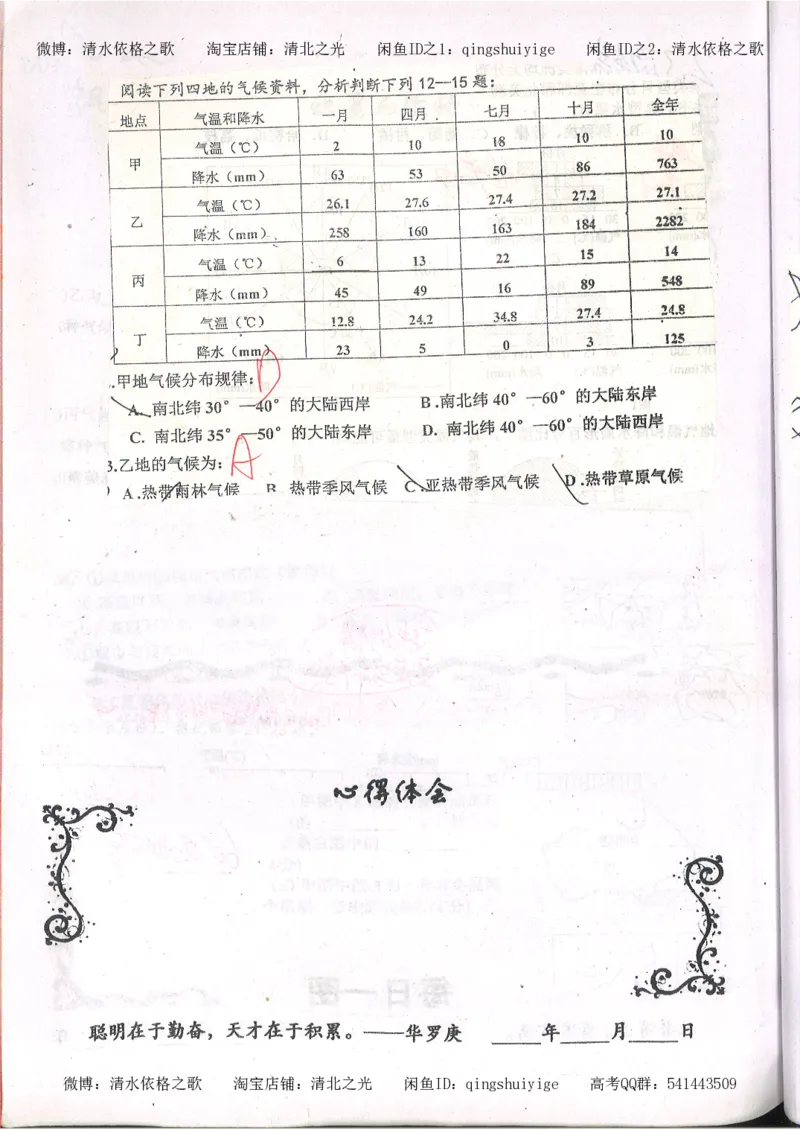 微博：清水依格之歌 淘宝店铺：清北之光 闲鱼ID之1：qingshuiyige 闲鱼ID之2：清水依格之歌
阅读下列四地的气候资料，分析判断下列12—15题：
地点 气温和降水 一月 四月 七月 十月 全年
甲 气温（℃） 2 10 18 10 10
降水（mm） 63 53 50 86 763
乙 气温（℃） 26.1 27.6 27.4 27.2 27.1
降水（mm） 258 160 163 184 2282
丙 气温（℃） 6 13 22 15 14
降水（mm） 45 49 16 89 548
丁 气温（℃） 12.8 24.2 34.8 27.4 24.8
降水（mm） 23 5 0 3 125
.甲地气候分布规律： D
A. 南北纬30°—40°的大陆西岸 B.南北纬40°—60°的大陆东岸
C. 南北纬35°—50°的大陆东岸 D. 南北纬40°—60°的大陆西岸
3.乙地的气候为： A
A.热带雨林气候 B 热带季风气候 C.亚热带季风气候 D.热带草原气候
心得体会
聪明在于勤奋，天才在于积累。——华罗庚 ____年____月____日
微博：清水依格之歌 淘宝店铺：清北之光 闲鱼ID：qingshuiyige 高考QQ群：541443509